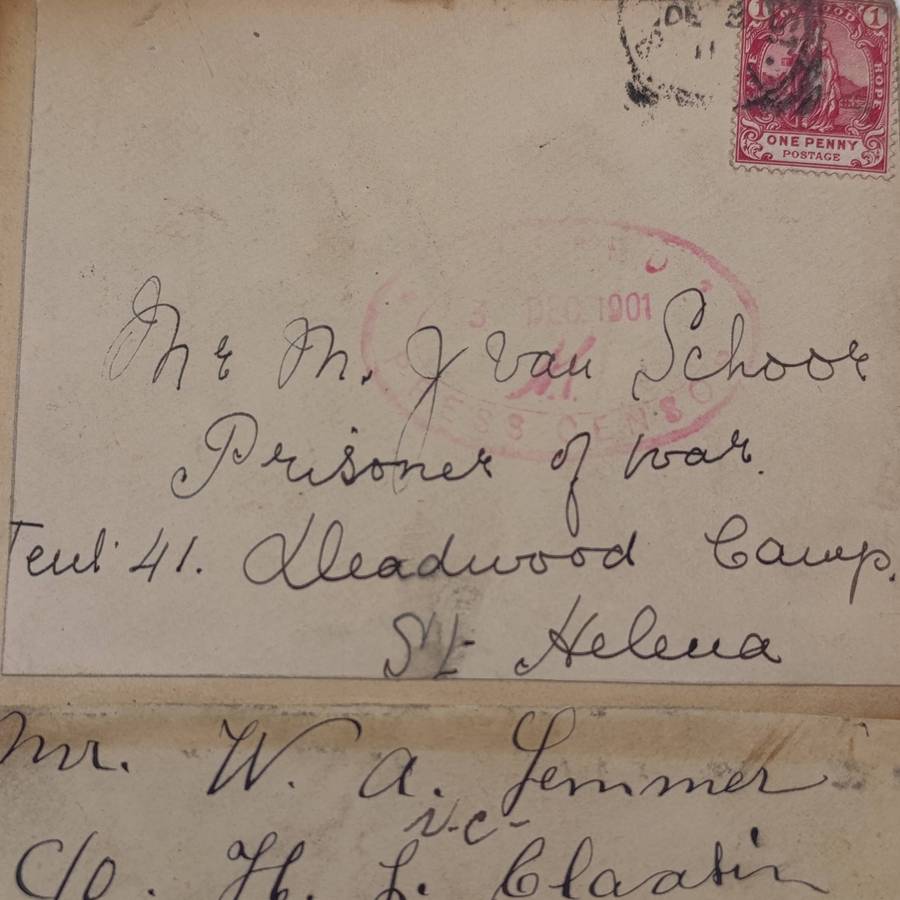 DE
11
1 1
HOPE
ONE PENNY
POSTAGE
3 DEC. 1901
Mr M. J van Schoor
Prisoner of war.
Tent 41. Deadwood Camp.
St Helena
Mr. W. A. Lemmer
C/o. H. L.